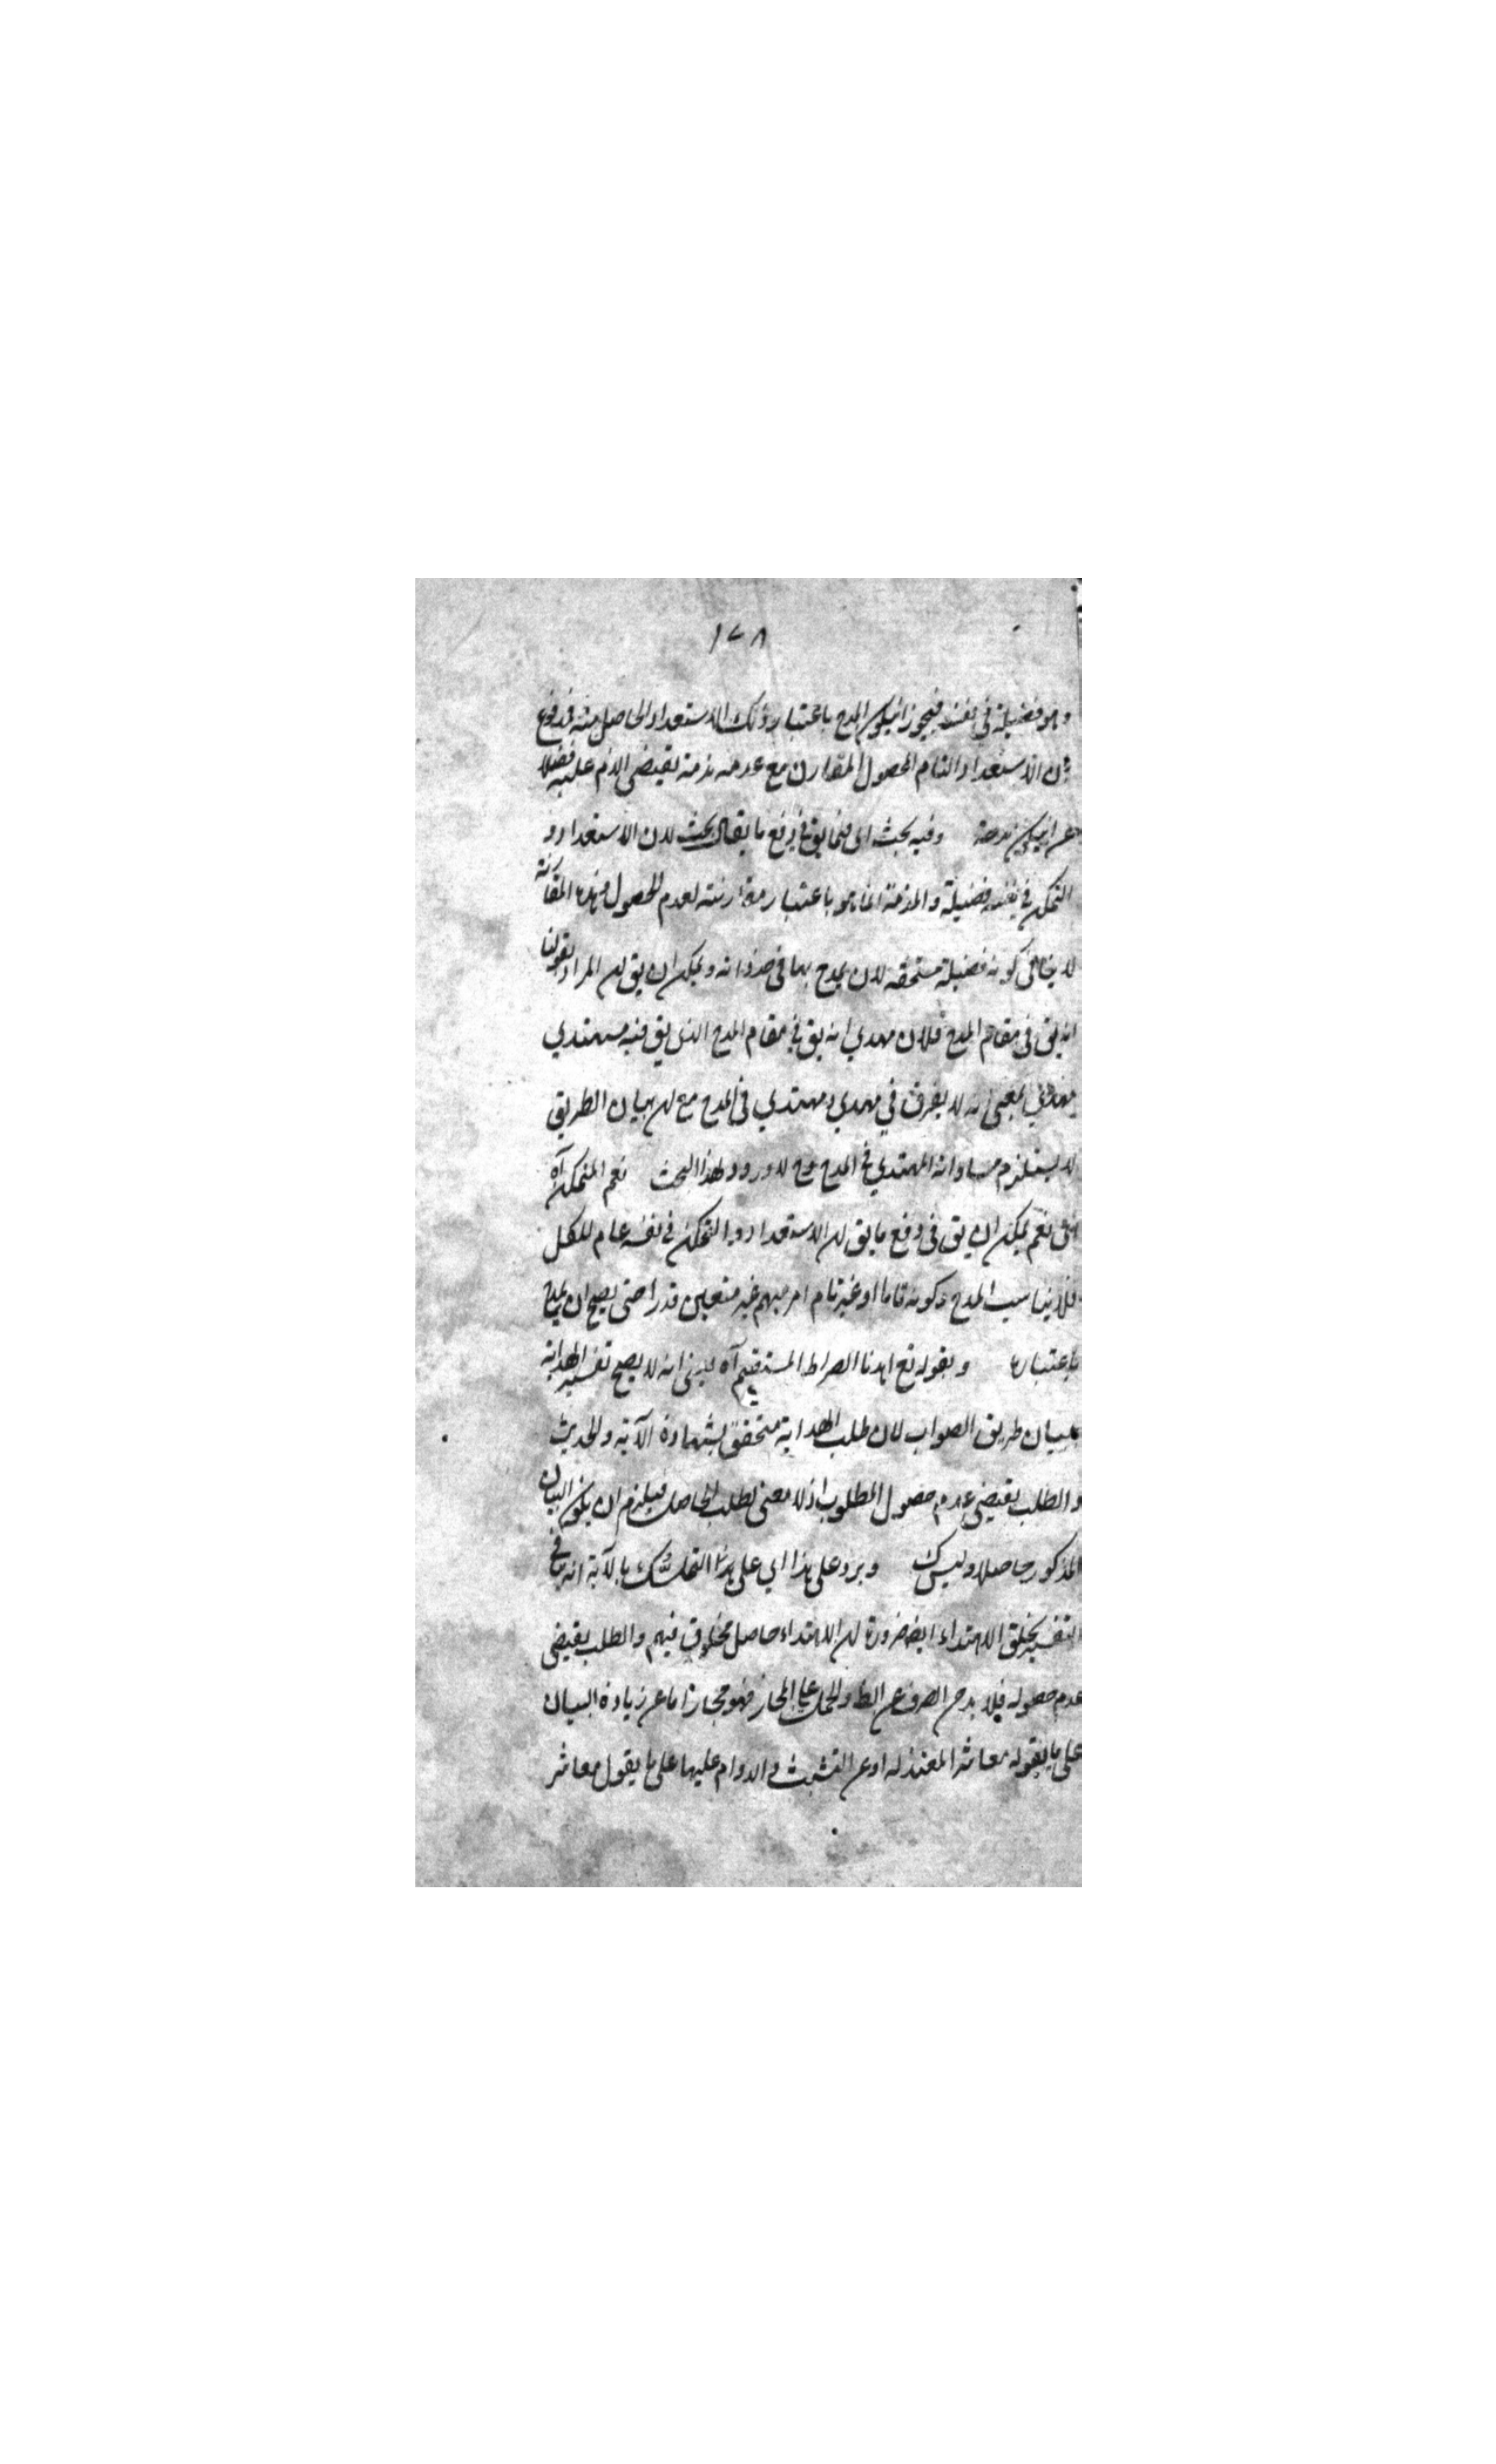 ١٧٨
وهو فضيلة في نفسه فيجوز ان يكون المدح باعتبار ذلك الاستعداد الحاصل منه فمدفوع
بان الاستعداد التام الحصول المقارن مع عدمه مذمة يقتضي الذم عليه فضلا
عن ان يكون مدحة وفيه بحث اى فيما يق في دفع ما يقال بحث لان الاستعداد و
التمكن في نفسه فضيلة و المذمة انما هو باعتبار مقارنته لعدم الحصول وهذه المقارنة
لا ينافى كونه فضيلة مستحقه لان يمدح بها في حد ذاته ويمكن ان يق ان المراد بقولنا
انه يق في مقام المدح فلان مهدي انه يق في مقام المدح الذى يق فيه مهتدي
مهدي بمعنى انه لا يفرق في مهدي ومهتدي في المدح مع ان بيان الطريق
لا يستلزم مساواته المهتدي في المدح وح لا ورود لهذا البحث نعم المتمكن آه
يعنى نعم يمكن ان يق في دفع ما يق ان الاستعداد والتمكن في نفسه عام للكل
فلا يناسب المدح وكونه تاما او غير تام امر مبهم غير متعين قدرا حتى يصح ان يمدح
باعتباره وبقوله تع اهدنا الصراط المستقيم آه يعنى انه لا يصح تفسير الهداية
ببيان طريق الصواب لان طلب الهداية متحقق بشهادة الآية والحديث
والطلب يقتضي عدم حصول المطلوب اذ لا معنى لطلب الحاصل فيلزم ان يكون البيان
المذكور حاصلا وليس ك ويرد على هذا اي على هذا التمسك بالآية انه ينافي
التفسير بخلق الاهتداء ايض ضرورة ان الاهتداء حاصل مخلوق فيهم والطلب يقتضي
عدم حصوله فلا بد من الصرف عن الظ والحمل على المجاز فهو مجاز اما عن زيادة البيان
على ما يقوله معاشر المعتزله او عن التثبت والدوام عليها على ما يقول معاشر